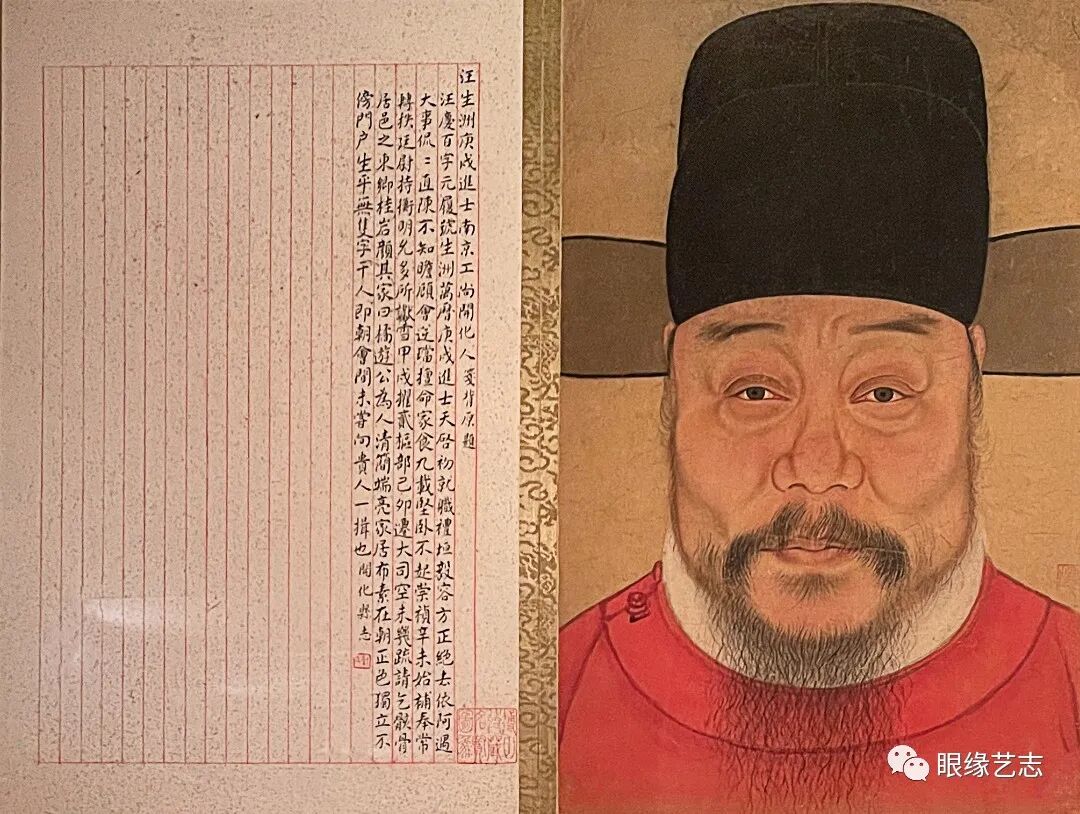 汪生洲庚戌進士南京工尚開化人裱背原題
汪慶百字元履號生洲萬曆庚戌進士天啓初就職禮垣毅容方正絕去依阿過
大事侃二直陳不知瞻顧會逆璫擅命家食九載堅卧不起崇禎辛未始補奉常
轉挟廷尉持衡明允多所讞雪甲戌擢貳樞部己卯遷大司空未幾疏請乞骸骨
居邑之東鄉桂岩顏其家曰橘遊公為人清簡端亮家居布素在朝正色獨立不
傍門户生平無隻字干人即朝會間未嘗向貴人一揖也開化縣志
眼缘艺志